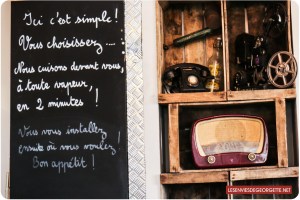 Ici c'est simple !
Vous choisissez ....
Nous cuisons devant vous,
à toute vapeur,
en 2 minutes !
Vous vous installez
ensuite où vous voulez !
Bon appétit !
LESENVIESDEGEORGETTE.NET